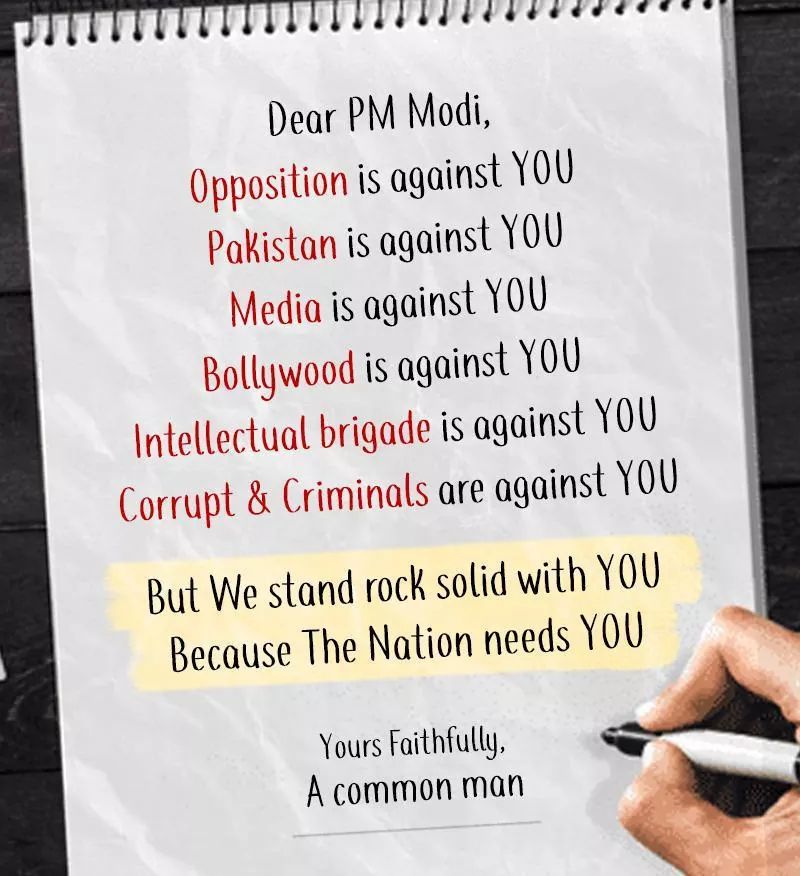 Dear PM Modi,
Opposition is against YOU
Pakistan is against YOU
Media is against YOU
Bollywood is against YOU
Intellectual brigade is against YOU
Corrupt & Criminals are against YOU
But We stand rock solid with YOU
Because The Nation needs YOU
Yours Faithfully,
A common man